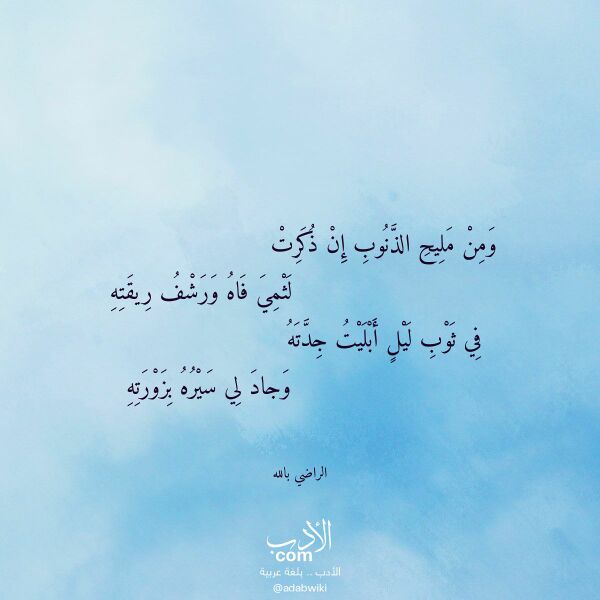 وَمِنْ مَلِيحِ الذَّنُوبِ إِنْ ذُكَرِتْ
لَثْمِيَ فَاهُ وَرَشْفُ رِيقَتِهِ
فِي ثَوْبِ لَيْلٍ أَبْلَيْتُ جِدَّتَهُ
وَجادَ لِي سَيْرُهُ بِزَوْرَتِهِ
الراضي بالله
الأدب
com
الأدب .. بلغة عربية
@adabwiki